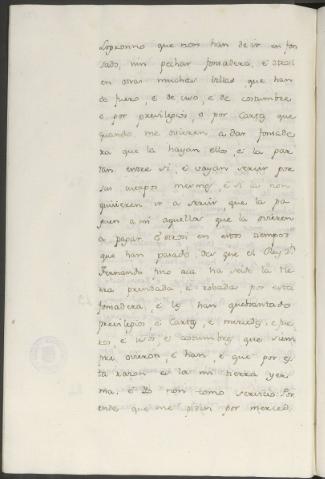 Logronno que non han de ir en fon
sado, nin pechar fonsadera, é otrosi
en otras muchas villas que han
de fuero, é de uso, é de costumbre
é por previlegios, o por Carta que
quando me ovieren a dar fonsade
ra que la hayan ellos, é la par
tan entre si, é vayan servir por
sus cuerpos mesmos, é si la non
quisieren ir a servir, que la pa
guen a mi aquellos que la ovieren
a pagar. E otrosi en estos tiempos
que han pasado des que el Rey Dn.
Fernando fino aca ha seido la tie
rra prendada é robada por esta
fonsadera, é les han quebrantado
previlegios, é Cartas, é mercedes, é fue
ros, é usos, é costumbres que siem
pre ovieron, é han, é que por es
ta razon es la mi tierra yer
ma, é Yo non tomo servicio. Por
ende que me piden por merced,